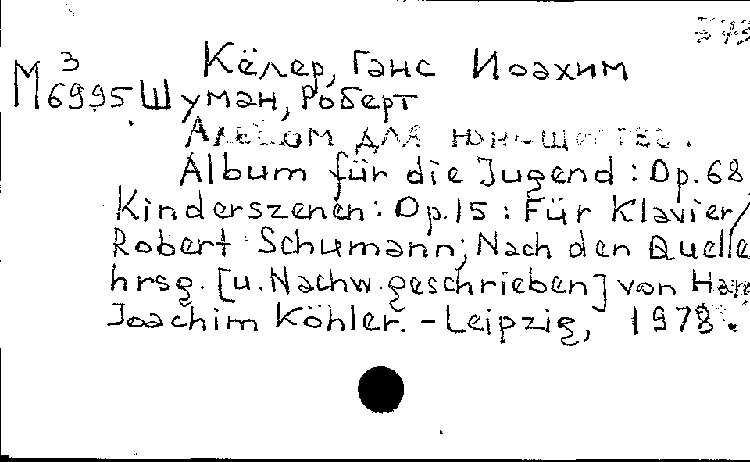 Кёлер, Ганс Иоахим
М 3
6995 Шуман, Роберт
Альбом для юношества.
Album für die Jugend : Op. 68
Kinderszenen : Op. 15 : Für Klavier /
Robert Schumann; Nach den Quelle
hrsg. [u. Nachw. geschrieben] von Han
Joachim Köhler. - Leipzig, 1978.